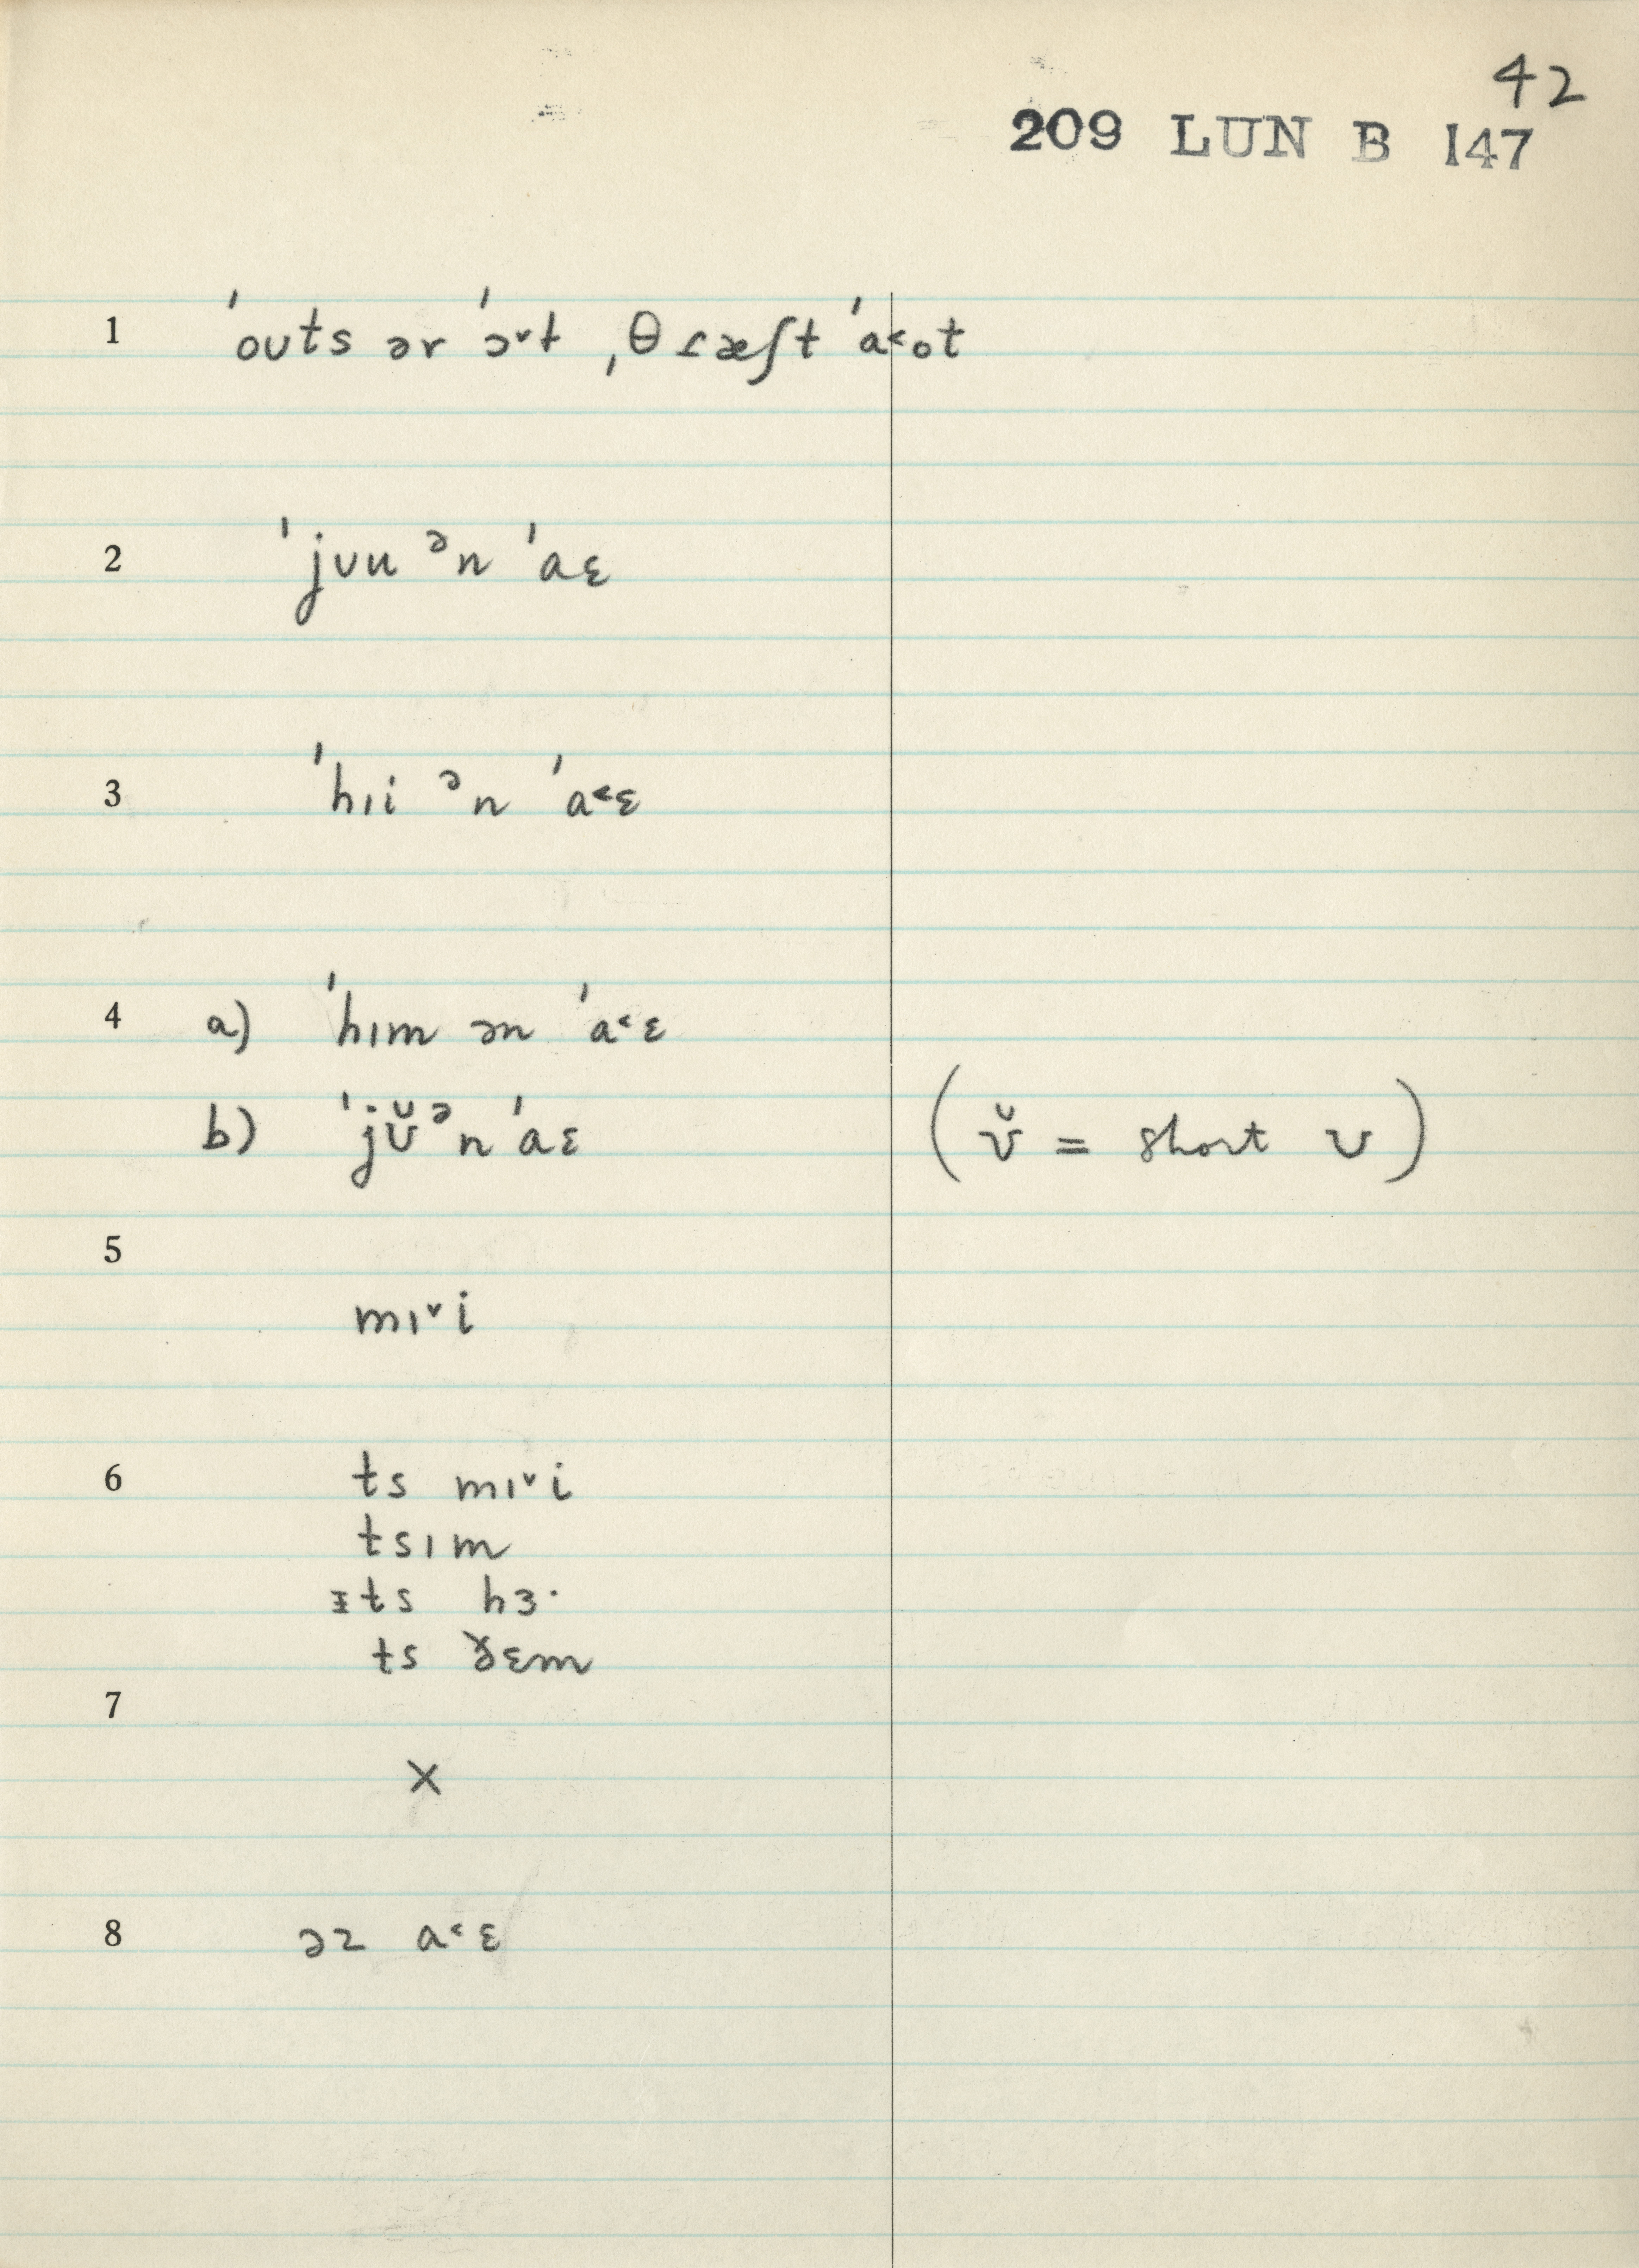 42
209 LUN B 147
1 ˈoʊts ər ˈɔ˅t ˌθɾæʃt ˈa˂ot
2 ˈjʊu ᵊn ˈaɛ
3 ˈhɪi ᵊn ˈa˂ɛ
4 a) ˈhɪm ən ˈa˂ɛ
b) ˈjʊ̆ᵊn ˈaɛ (ʊ̆ = short ʊ)
5
mɪ˅i
6 ts mɪ˅i
tsɪm
ɪts hɜ·
ts ðɛm
7
×
8 əz a˂ɛ